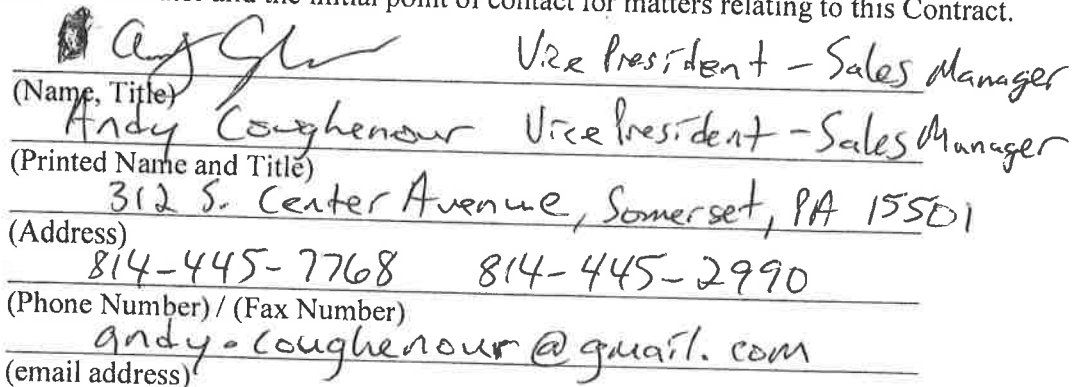 and the initial point of contact for matters relating to this Contract.
Vice President - Sales Manager
(Name, Title)
Andy Coughenour Vice President - Sales Manager
(Printed Name and Title)
312 S. Center Avenue, Somerset, PA 15501
(Address)
814-445-7768 814-445-2990
(Phone Number) / (Fax Number)
andy.coughenour@gmail.com
(email address)